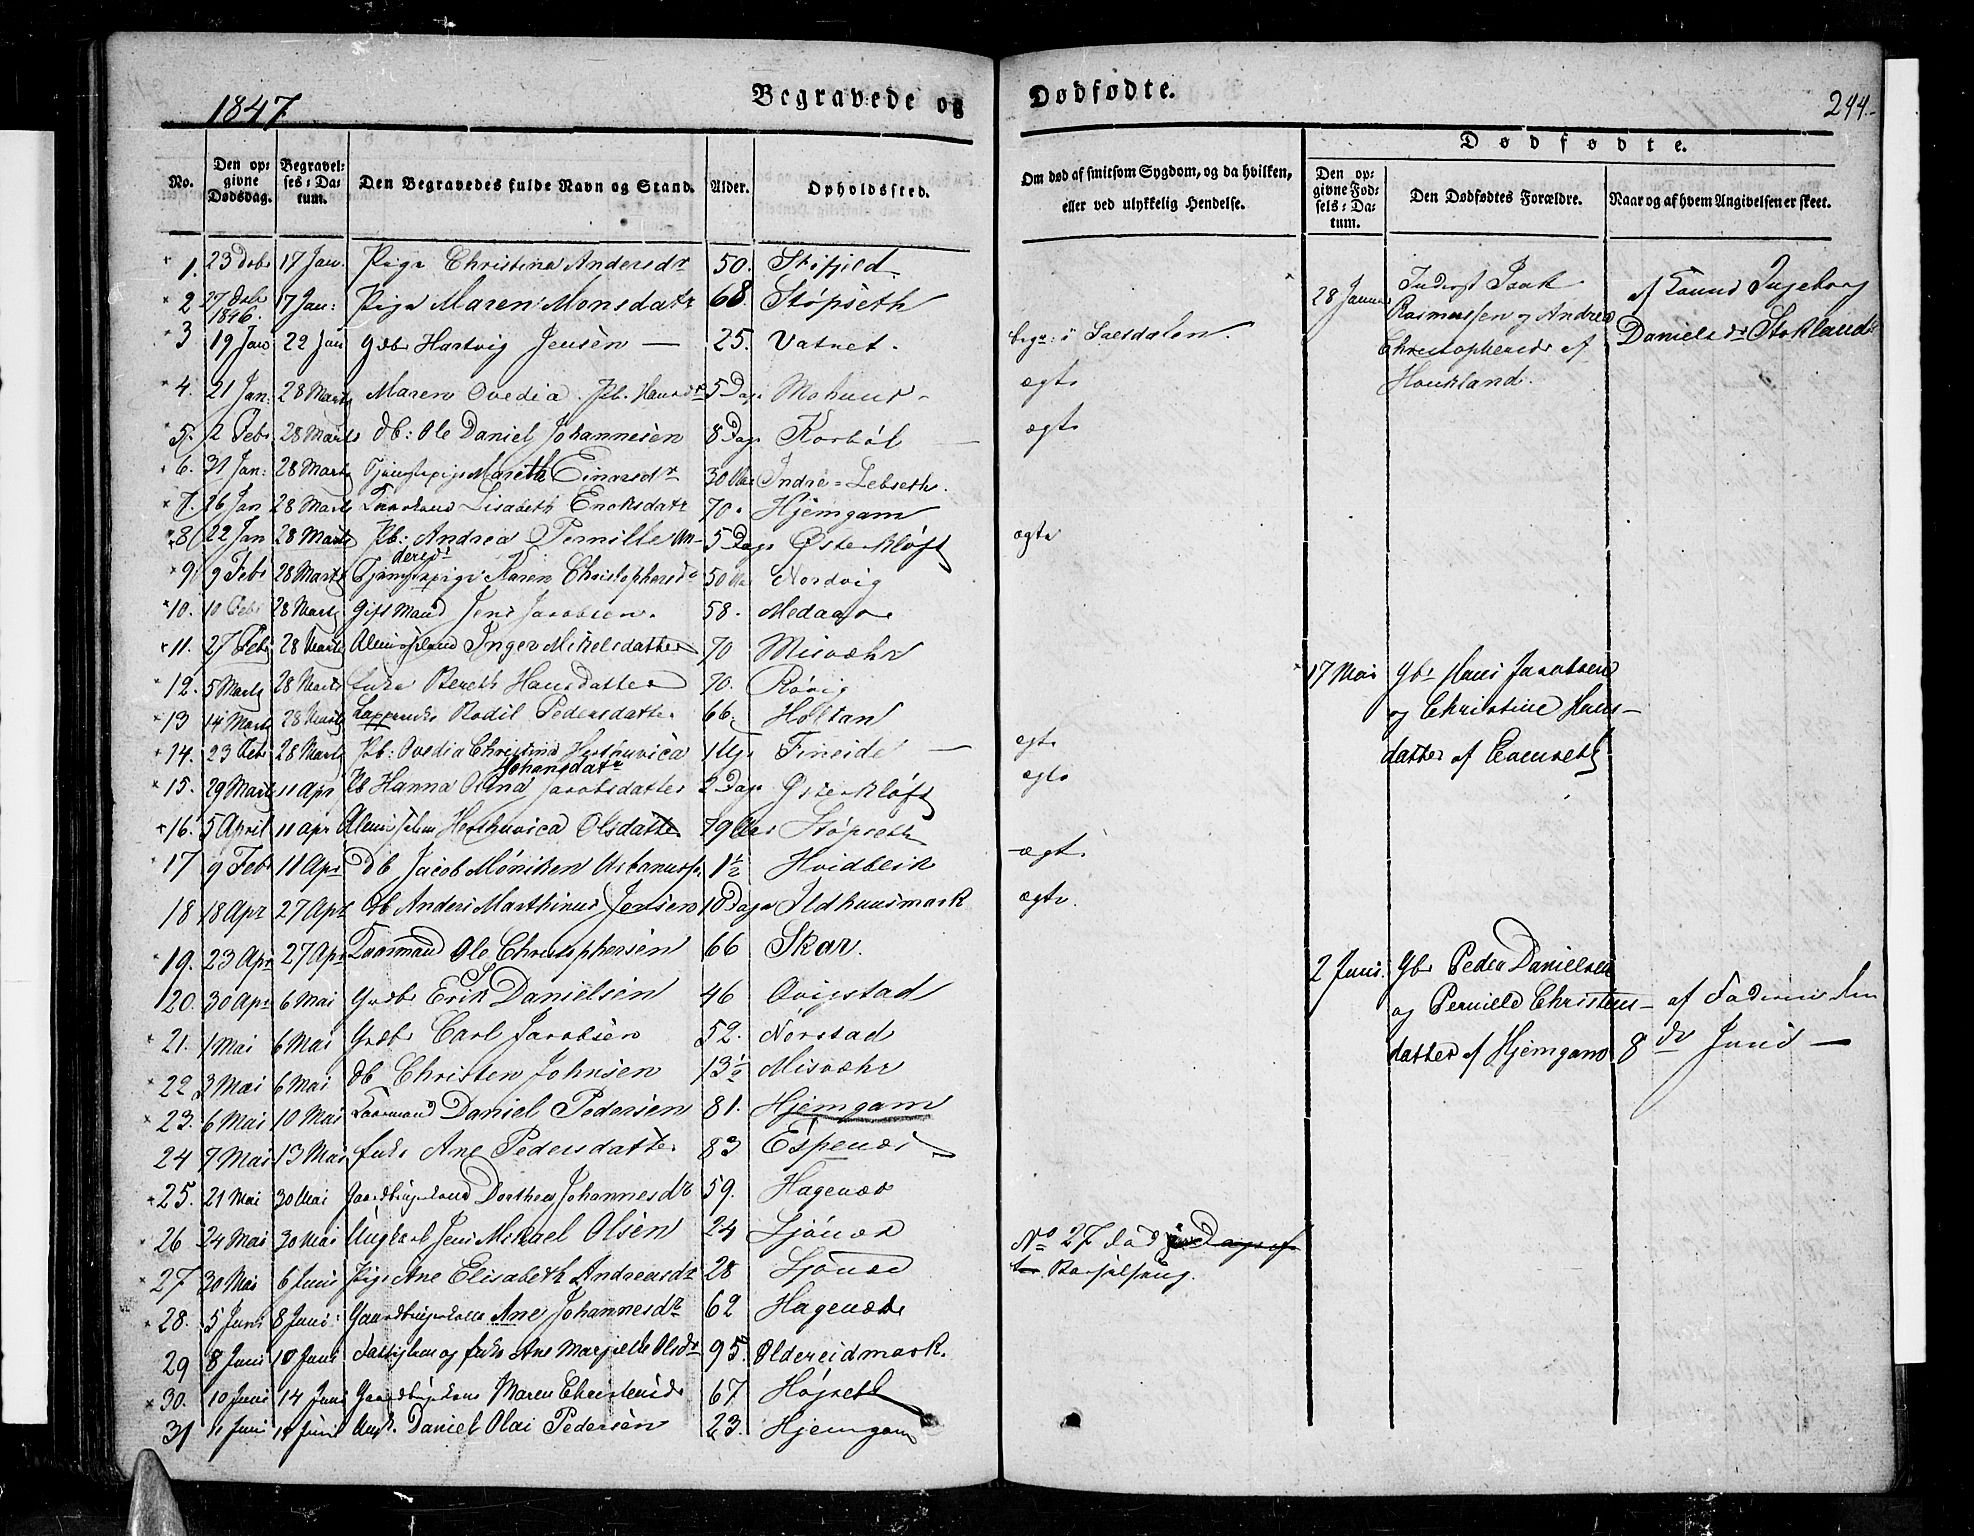 1847
Begravede og Dødfødte.
244.
No. Den opgivne Dødsdag. Begravelses-Datum. Den Begravedes fulde Navn og Stand. Alder. Opholdssted.
Om død af smitsom Sygdom, og da hvilken, eller ved ulykkelig Hendelse.
Dødfødte.
Den opgivne Fødsels-Datum. Den Dødfødtes Forældre. Naar og af hvem Angivelsen er skeet.
1. 23 Dcbr 17 Jan. Pige Christina Andersdr 50. Støfjeld
2 27 Dcbr 1846. 17 Jan: Pige Maren Monsdatr 68. Støpseth
3 19 Jan 22 Jan Gdbr Hartvig Jensen — 25. Vatnet. begr: i Saltdalen.
4. 21 Jan: 28 Marts Maren Ovedia Pb. Hansdr 5 Dage ægte
5. 2 Feb 28 Marts Db: Ole Daniel Johannesen 8 Dage Korbøl ægte
6. 31 Jan: 28 Marts Tjenestepige Mareth Einarsdr 30 Aar Indre-Lebseth.
7. 26 Jan 28 Marts Lisabeth Enoksdatr 70. Hjemgam
8 22 Jan 28 Marts Pb: Andrea Pernille Andersdr 5 Dage Østerkløft ægte
9 9 Feb 28 Marts Tjenestepige Karen Christophersdr 50 Aar Nordvig
10. 10 Feb 28 Marts Gift Mand Jens Jacobsen. 58. Medaas
11. 27 Feb 28 Marts Inger Mikelsdatter 70 Misvæhr
12. 5 Marts 28 Marts Enke Bereth Hansdatter 70. Røvig
13 14 Marts 28 Marts Lappenke Bodil Pedersdatter 66. Holtan
14. 23 Feb 28 Marts Pb: Ovedia Christina Hethuvica Johansdatr 1 Uge Fineide — ægte
15. 29 Marts 11 Apr Pb Hanna Jacobsdatter 2 Dage Østerkløft ægte
16. 5 April 11 apr Hethuvica Olsdatter 79 Aar Støpseth
17 9 Feb 11 Apr Db Jacob Møniken 1½ Hvidblik ægte
18 18 Apr 27 Apr Db Anders Marthinus Jensen 10 Dage Ildhuusmark ægte.
19. 23 Apr 27 Apr Kaarmand Ole Christophersen 66 Skar.
20. 30 Apr 6 Mai Gaardbr Erik Danielsen 46 Øvigstad
21. 1 Mai 6 Mai Gaardbr Carl Jacobsen 52. Norstad
22 3 Mai 6 Mai Db Christen Johnsen 13½ Misvæhr
23. 6 Mai 10 Mai Kaarmand Daniel Pedersen 81. Hjemgam
24 7 Mai 13 Mai Enke Ane Pedersdatter 83 Espenæs
25. 21 Mai 30 Mai Gaardbrugerkone Dorthea Johannesdr 59. Hagenæs
26 24 Mai 30 Mai Ungkarl Jens Mikael Olsen 24 Ljønæs
27 30 Mai 6 Juni Pige Ane Elisabeth Andreasdr 28 Ljønæs
28. 5 Juni 8 Juni: Ane Johannesdr 62 Hagenæs
29 8 Juni 10 Juni Fattiglem og Enke Ane Margrethe Olsdr 95. Oldereidmark.
30. 10 Juni 14 Juni Gaardbrugerkone Maren Christensdr 67 Højseth
31 11 Juni 14 Juni Ungk. Daniel Olai Pedersen 23. Hjemgam
No 27 død
Barselseng.
28 Januar Inderst Isak
Rasmussen og Andrea
Christophersdr af
Houkland.
af Konend Ingeborg
Danielsdr Stokland
17 Mai Gbr Hans Jacobsen
og Christine Hans-
datter af
2 Juni. Gbr Peder Danielsen
og Pernille Christens-
datter af Hjemgam
af Faderen den
8de Juni —